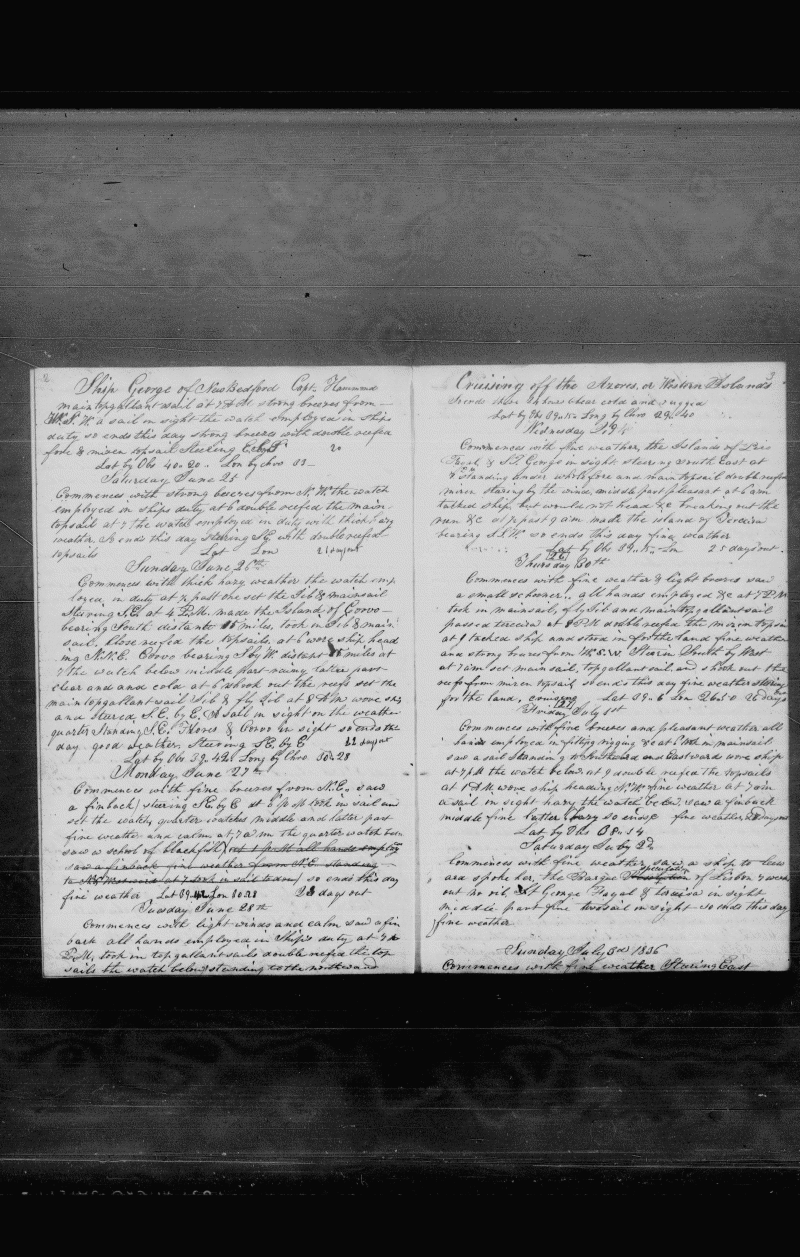 2
Ship George of New Bedford Capt. Hammond
main topgallant sail at 7 A M strong breezes from
W.N.W. a sail in sight the watch employed in this
duty so ends this day strong breezes with double reefed
fore & mizen topsail steering E by S 20
Lat by Obs 40-20 Lon by chro 33-
Saturday June 25
Commences with strong breezes from N.W. the watch
employed in ships duty, at 6 double reefed the main
topsail at 7 the watch employed in duty with thick hazy
weather. So ends this day steering S.E. with double reefed
topsails Lat Lon 21 days out
Sunday June 26th
Commences with thick hazy weather the watch emp
loyed in duty at ½ past one set the Jib & mainsail
Steering S.E. at 4 P.M. made the Island of Corvo
bearing South distance 15 miles, took in Jib & main
sail. Close reefed the topsails, at 6 wore ship head
ing N.N.E. Corvo bearing S by W distant 15 miles at
7 the watch below middle part rainy latter part
clear and and cold at 6 shook out the reefs set the
main topgallant sail Jib & fly Jib at 8 A M wove ship
and steered S.E. by E. A sail in sight on the weather
quarter Standing S.E. Flores & Corvo in sight so ends the
day good weather. Steering S.E. by E 22 days out
Lat by Obs 39.42 Long by Chro 30.28
Monday June 27th
Commences with fine breezes from N.E. saw
a finback steering S.E. by E at 6 P M took in sail and
set the watch, quarter watches middle and latter part
fine weather and calm at 7 a.m the quarter watch
saw a school of blackfish at 1 P.M all hands employ
saw a finback fine weather from N.E. standing
to at 7 took in sail so ends this day
fine weather Lat 39. Lon 30.28 23 days out
Tuesday June 28th
Commences with light winds and calm saw a fin
back all hands employed in Ship's duty at 7
P.M. took in topgallant sails double reefed the top
sails the watch below standing to the northward
3
Cruising off the Azores, or Western Islands
cold and rugged
Lat by Obs 39.15 Long by Chro 29.40
Wednesday 29
Commences with fine weather, the Islands of Pico
Fayal & St. George in sight steering South East at
7 standing under whole fore and main topsail double reefed
mizen staring by the wind, middle part pleasant at 6 am
tacked ship but would not head &c breaking out the
run &c at ½ past 9 a.m made the island of Terceira
bearing S.S.W so ends this day fine weather
Lat by Obs 39.15 Lon 25 days out
Thursday 30th
Commences with fine weather & light breezes saw
a small schooner. all hands employed &c at 7 P.M
took in mainsail, fly Jib and main topgallant sail
passed terceira at 8 P.M double reefed the mizen topsail
at 1 tacked ship and stood in for the land fine weather
and strong breezes from W.S.W. Steerin South by West
at 7 am set mainsail, topgallant sail and shook out the
reefs from mizen topsail so ends this day fine weather
for the land, cruising Lat 39.6 Lon 26.50 26 days
Friday July 1st
Commences with fine breezes and pleasant weather all
hands employed in fitting rigging &c at 6 took in mainsail
saw a sail standing to Southward and Eastward wove ship
at 7 P.M the watch below at 9 double reefed the topsails
at 1 A.M wove ship heading N.W. fine weather at 7 am
a sail in sight hazy the watch below saw a finback
middle fine latter hazy so ends fine weather 27 days out
Lat by Obs 38.14
Saturday July 2d
Commences with fine weather, saw a ship to leew
ard spoke her, the Barque Speculation of Lisbon 7 weeks
out no oil St George Fayal & Terceira in sight
middle part fine two sail in sight so ends this day
fine weather
Sunday July 3d 1836
Commences with fine weather Steering East